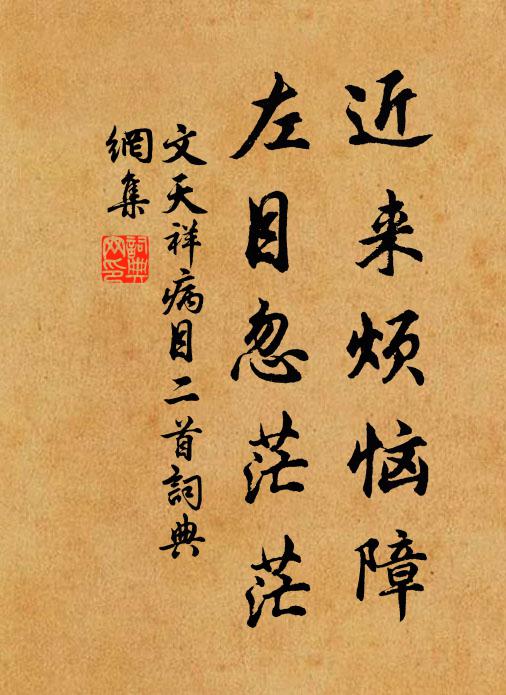 近来烦恼障
左目忽茫茫
文天祥病目二首詞典
網集
詞典
网印